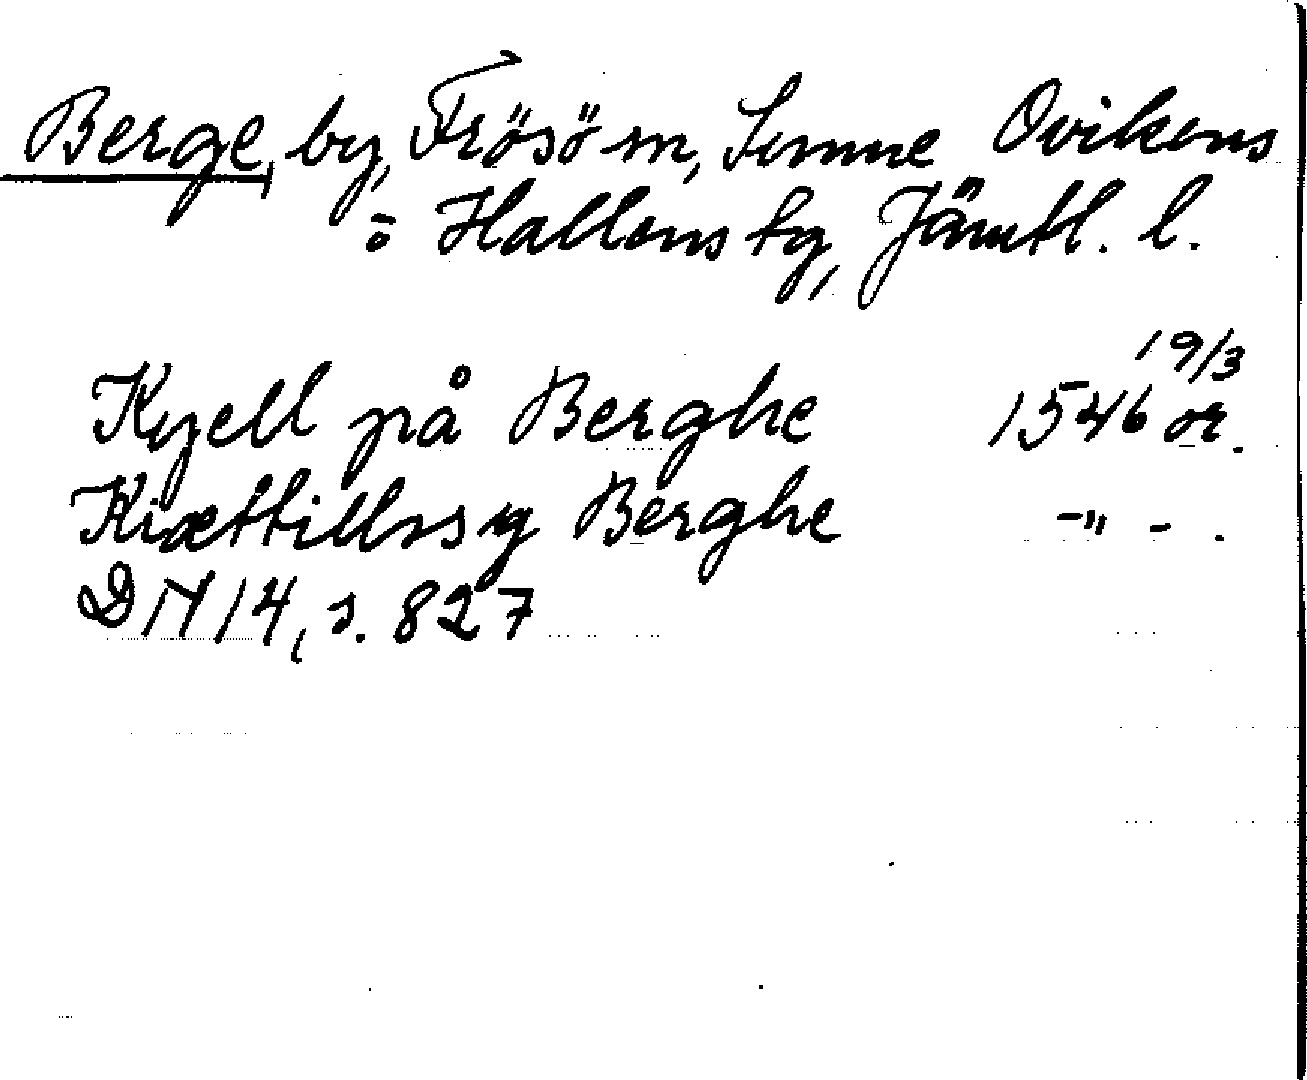 Berge, by, Frösö sn, Sunne Ovikens
o Hallens tg, Jämtl. l.
19/3
Kyell på Berghe 1546 or.
Kiættillss y Berghe -"- .
DN 14, s. 827